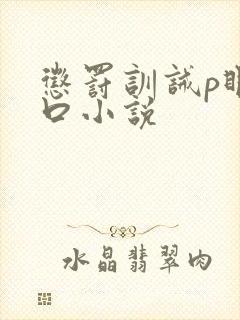 懲罰訓誡p眼
口小說
水晶翡翠肉